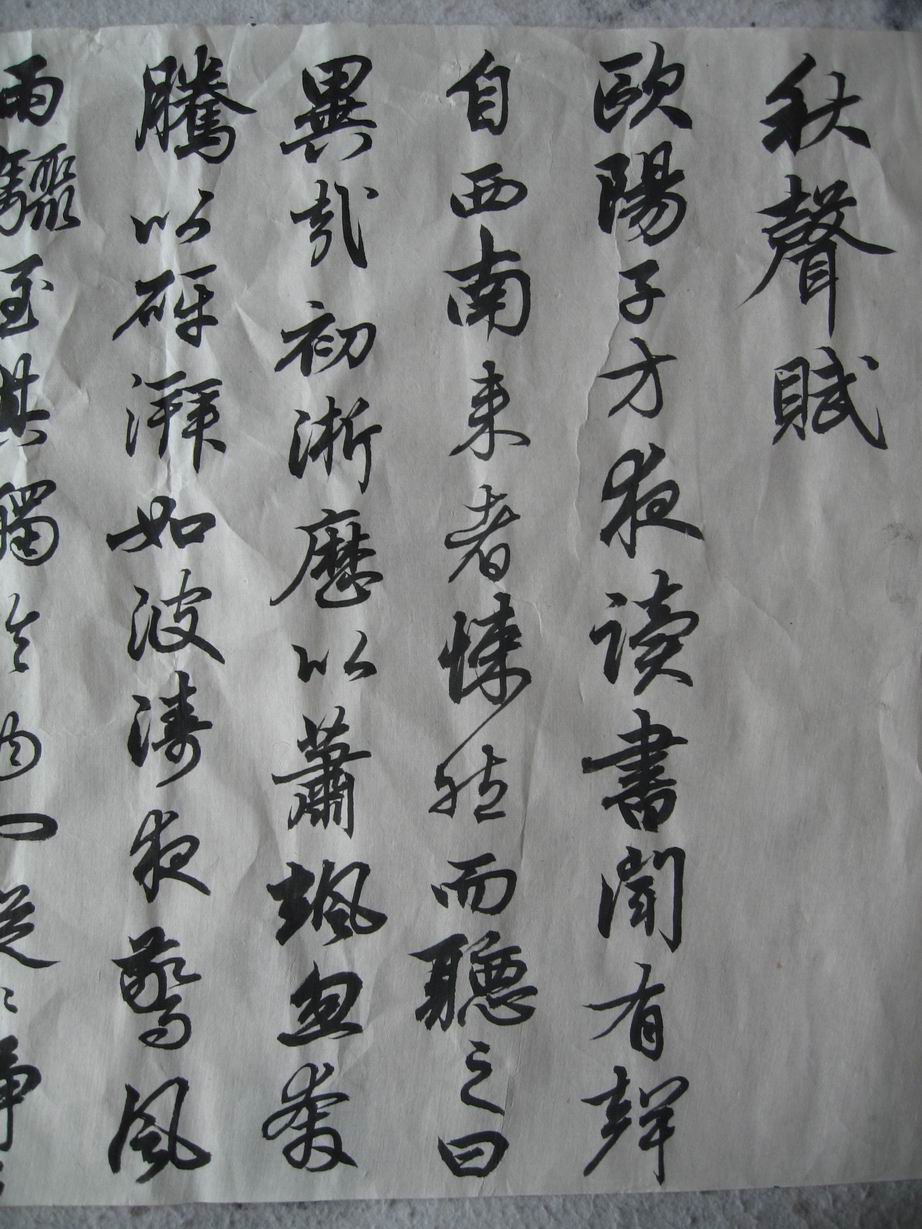 秋聲賦
歐陽子方夜讀書聞有聲
自西南来者悚然而聽之曰
異哉初淅歷以蕭颯忽奔
騰以砰湃如波濤夜驚風
雨驟至其觸於物也